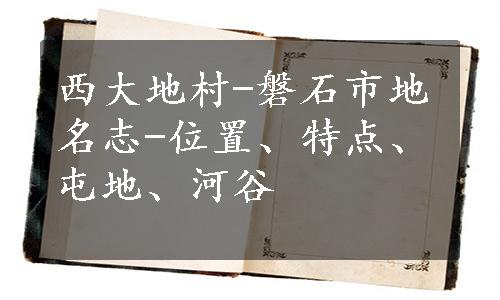 西大地村-磐石市地
名志-位置、特点、
屯地、河谷